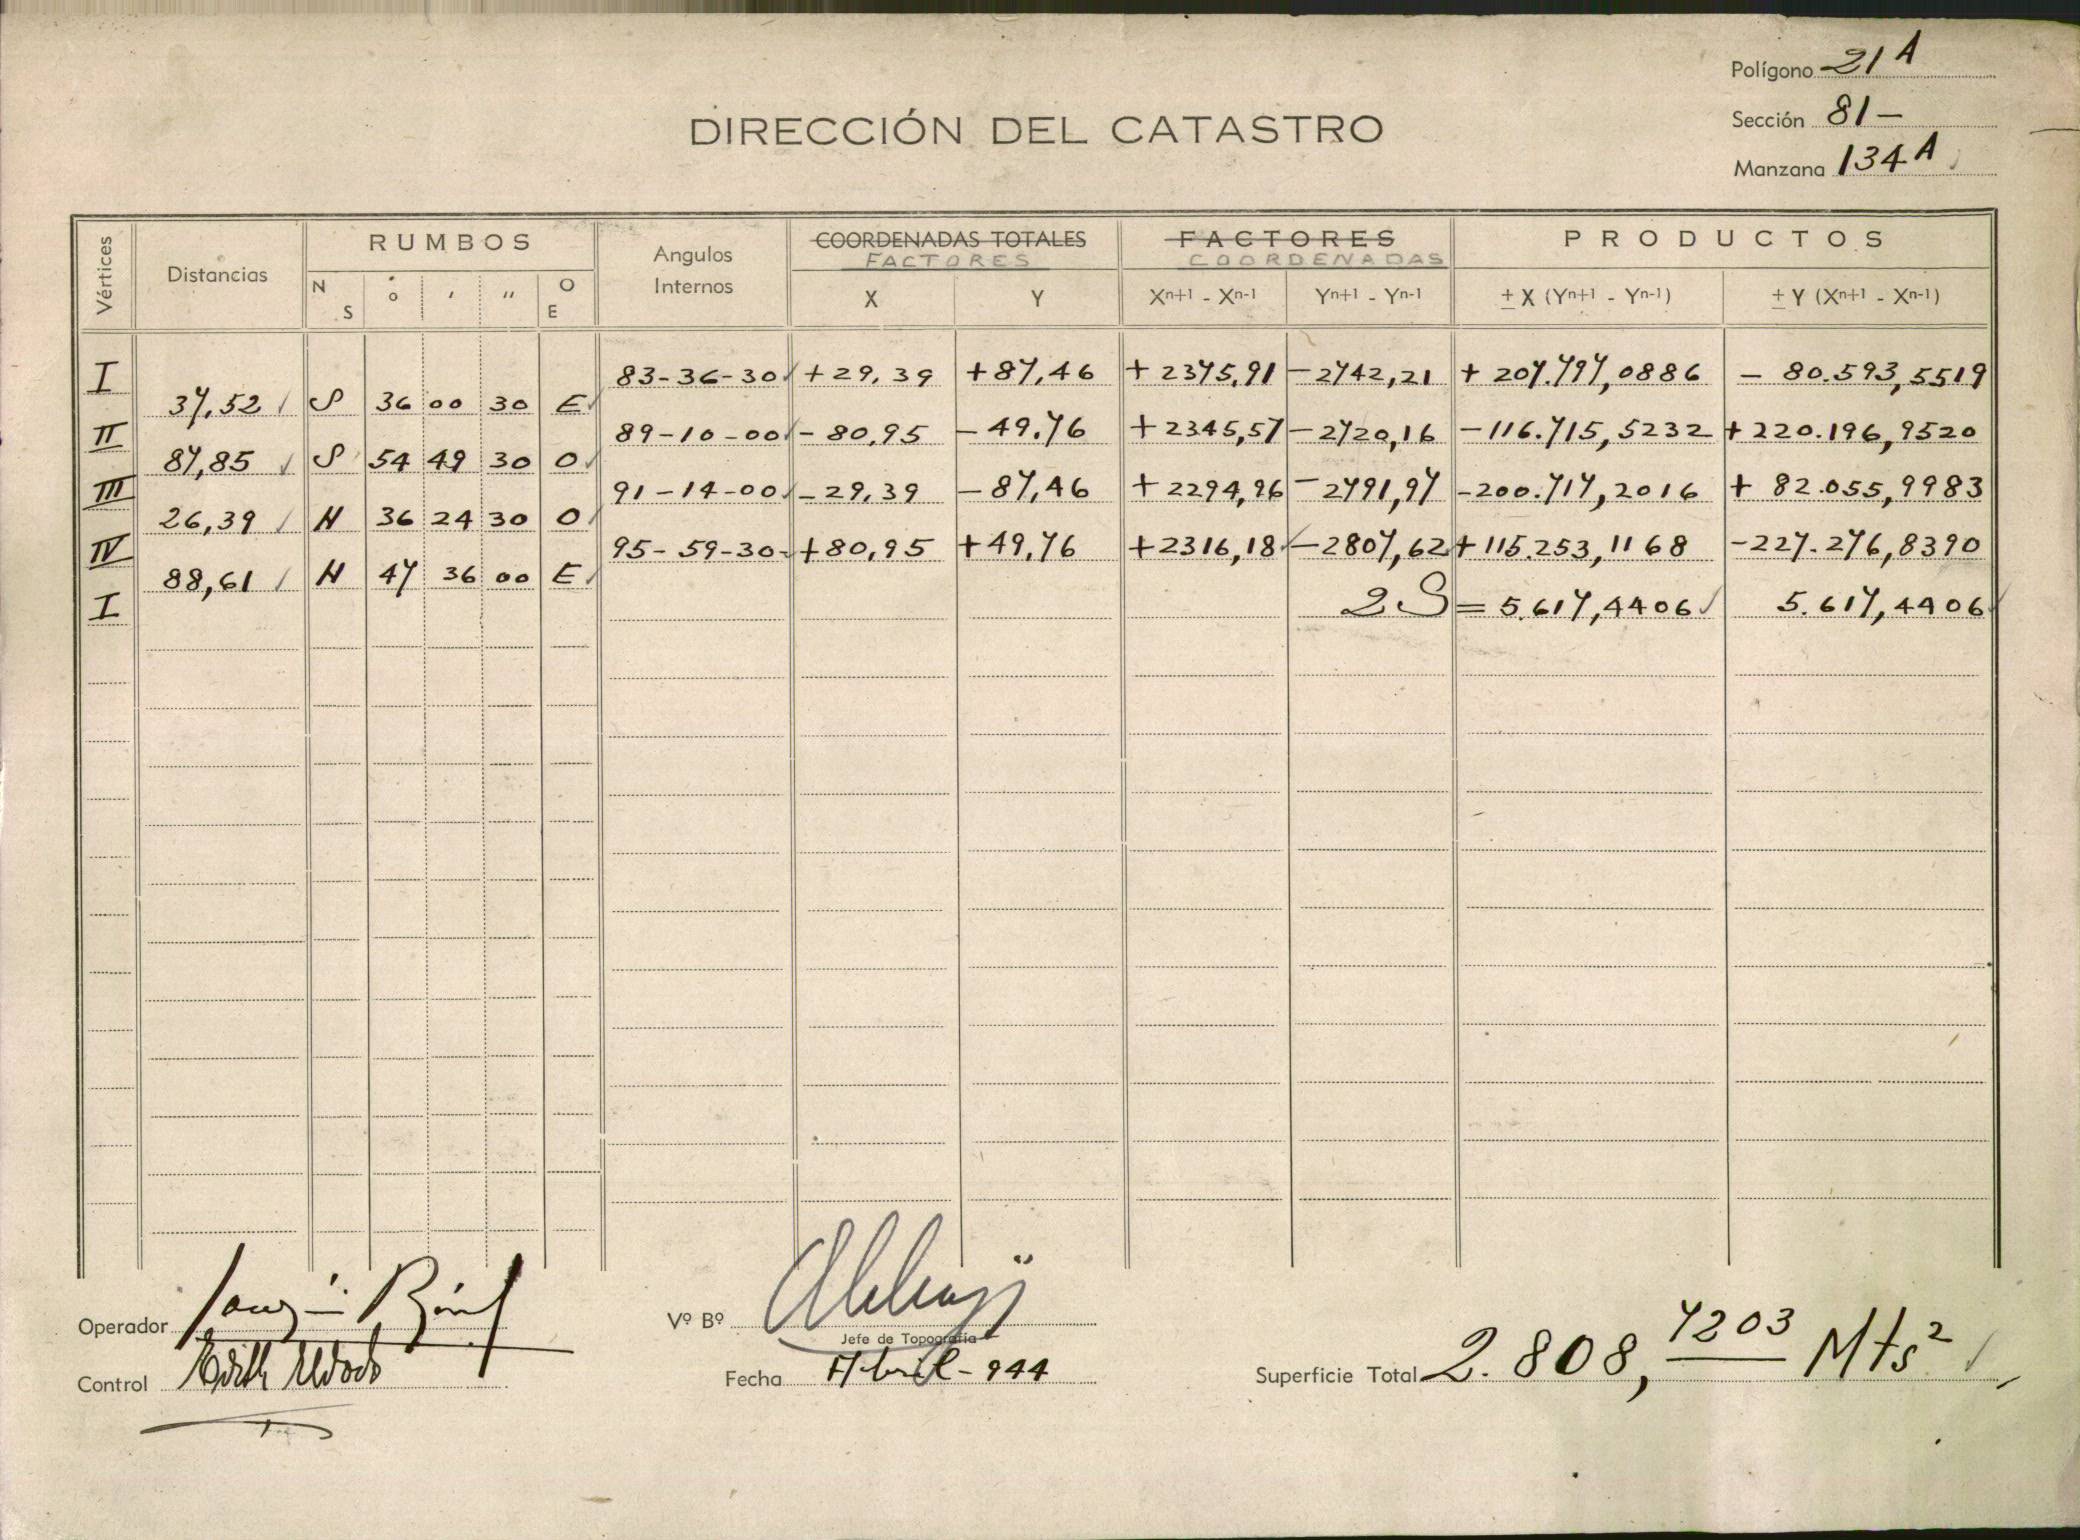 Polígono 21A
Sección 81-
Manzana 134A
DIRECCIÓN DEL CATASTRO
Vértices Distancias RUMBOS Angulos Internos COORDENADAS TOTALES FACTORES PRODUCTOS
FACTORES COORDENADAS
N S ° ' " O E X Y Xn+1 - Xn-1 Yn+1 - Yn-1 ± X (Yn+1 - Yn-1) ± Y (Xn+1 - Xn-1)
I 83-36-30 +29,39 +87,46 +2375,91 -2742,21 +207.797,0886 -80.593,5519
37,52 S 36 00 30 E
II 89-10-00 -80,95 -49,76 +2345,57 -2720,16 -116.715,5232 +220.196,9520
87,85 S 54 49 30 O
III 91-14-00 -29,39 -87,46 +2294,96 -2791,97 -200.717,2016 +82.055,9983
26,39 N 36 24 30 O
IV 95-59-30 +80,95 +49,76 +2316,18 -2807,62 +115.253,1168 -227.276,8390
88,61 N 47 36 00 E
I 2S = 5.617,4406 5.617,4406
Operador
Vº Bº
Jefe de Topografía
Control Edith
Fecha Abril-944
Superficie Total 2.808,7203 Mts2